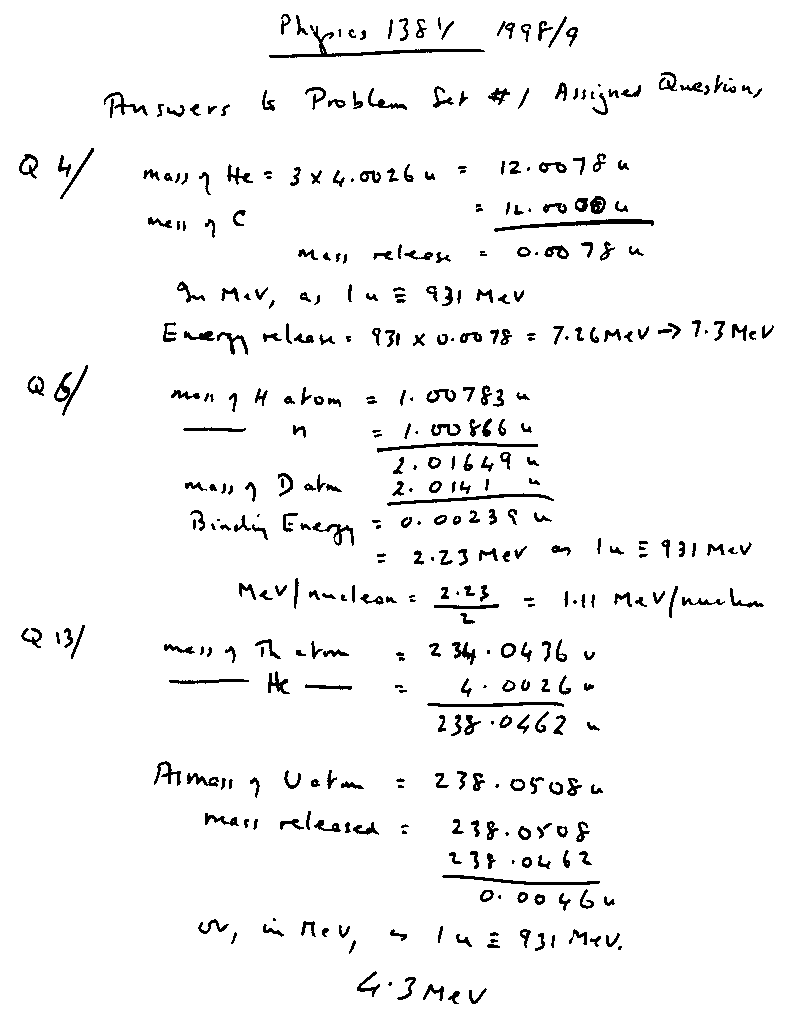 Physics 138Y 1998/9
Answers to Problem Set #1 Assigned Questions
Q 4/ mass of He = 3 x 4.0026 u = 12.0078 u
mass of C = 12.0000 u
mass release = 0.0078 u
In MeV, as 1 u ≡ 931 MeV
Energy release = 931 x 0.0078 = 7.26 MeV → 7.3 MeV
Q 6/ mass of H atom = 1.00783 u
—— n = 1.00866 u
2.01649 u
mass of D atm 2.0141 u
Binding Energy = 0.00239 u
= 2.23 MeV as 1u ≡ 931 MeV
MeV/nucleon = 2.23/2 = 1.11 MeV/nucleon
Q 13/ mass of Th atom = 234.0436 u
—— He —— = 4.0026 u
238.0462 u
As mass of U atom = 238.0508 u
mass released = 238.0508
238.0462
0.0046 u
or, in MeV, as 1 u ≡ 931 MeV.
4.3 MeV